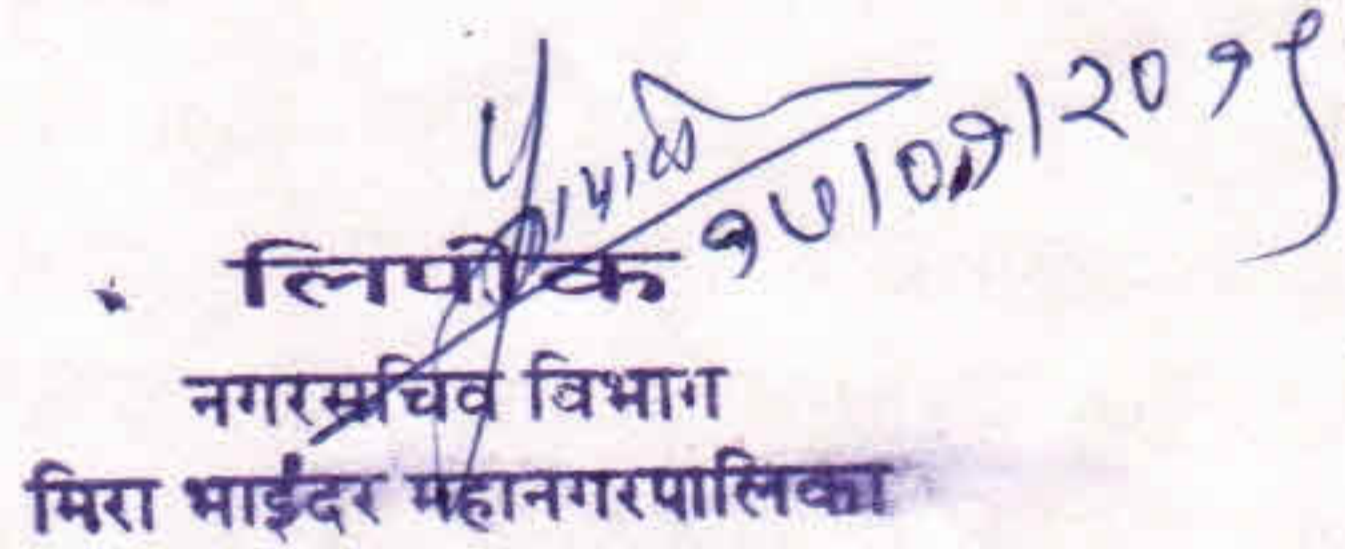 १७/०१/२०१९
लिपीक
नगरसचिव विभाग
मिरा भाईंदर महानगरपालिका